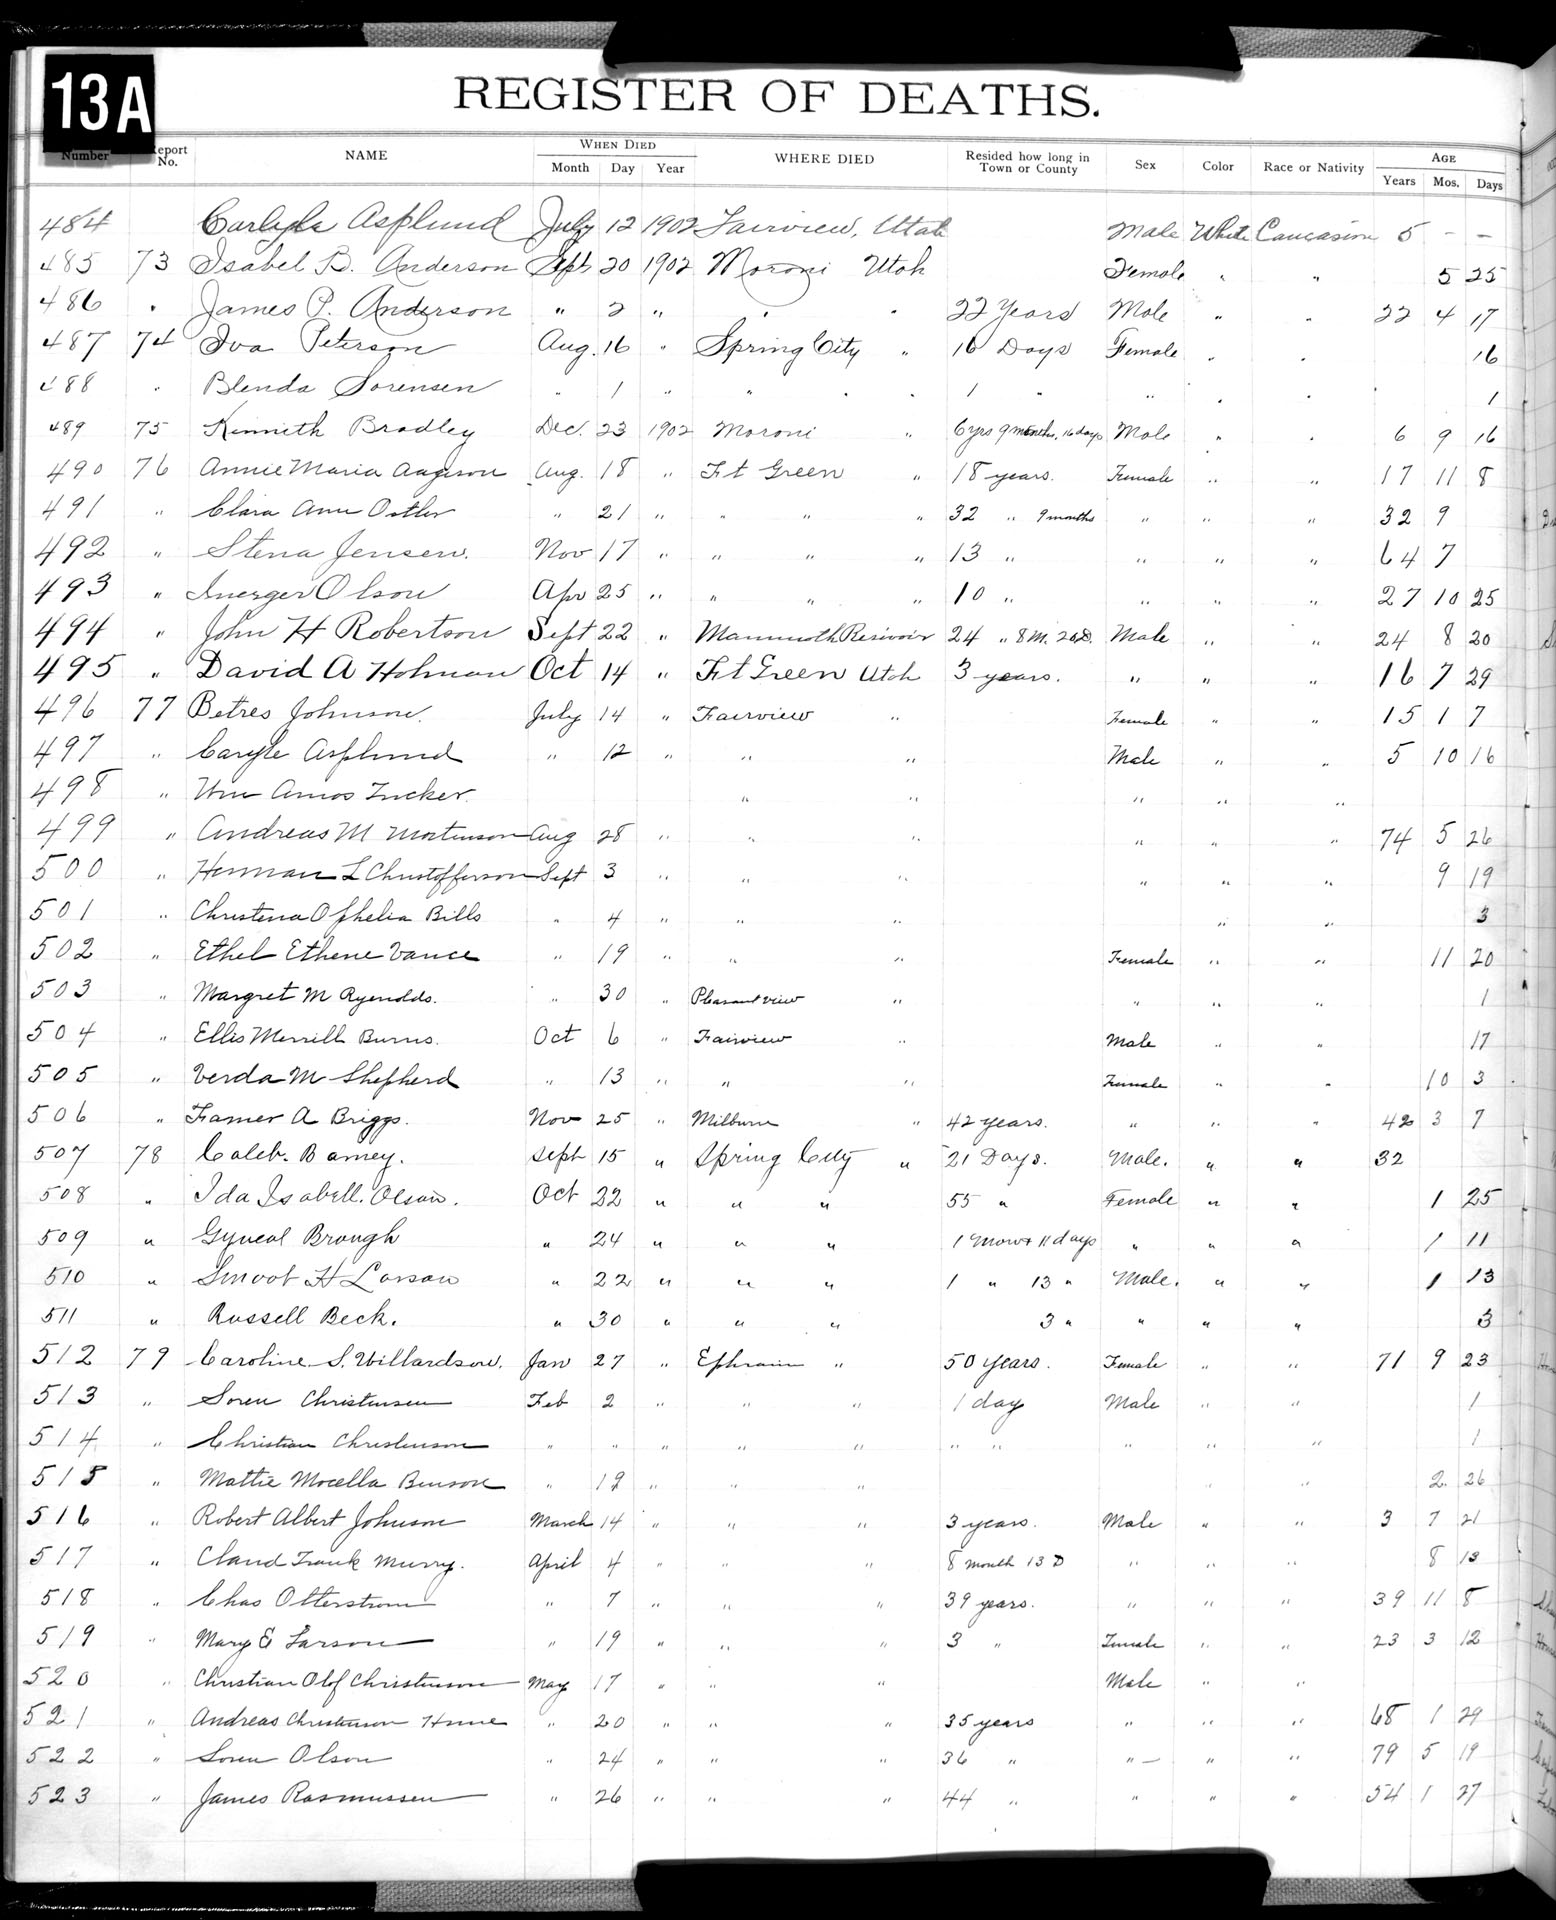 13A
REGISTER OF DEATHS.
Number Report No. NAME WHEN DIED Month Day Year WHERE DIED Resided how long in Town or County Sex Color Race or Nativity AGE Years Mos. Days
484 Carlyle Asplund July 12 1902 Fairview, Utah Male White Caucasion 5 - -
485 73 Isabel B. Anderson Sept 20 1902 Moroni Utah Female " " 5 25
486 " James P. Anderson " 2 " " " 22 Years Male " " 22 4 17
487 74 Iva Peterson Aug. 16 " Spring City " 16 Days Female " " 16
488 " Blenda Sorensen " 1 " " " 1 " " " " 1
489 75 Kenneth Bradley Dec. 23 1902 Moroni " 6 yrs 9 months, 16 days Male " " 6 9 16
490 76 Annie Maria Aageson Aug. 18 " Ft Green " 18 years. Female " " 17 11 8
491 " Clara Ann Ostler " 21 " " " " 32 " 9 months " " " 32 9
492 " Stena Jensen. Nov 17 " " " " 13 " " " " 64 7
493 " Inerger Olson Apr 25 " " " " 10 " " " " 27 10 25
494 " John H Robertson Sept 22 " Mammoth Resivoir 24 " 8 M. 20 D. Male " " 24 8 20
495 " David A Holman Oct 14 " Ft Green Utah 3 years. " " " 16 7 29
496 77 Betres Johnson. July 14 " Fairview " Female " " 15 1 7
497 " Caryle Asplund " 12 " " " Male " " 5 10 16
498 " Wm Amos Tucker. " " " " "
499 " Andreas M Mortenson Aug 28 " " " " " " 74 5 26
500 " Herman L Christofferson Sept 3 " " " " " " 9 19
501 " Christena Ophelia Bills " 4 " " " " " 3
502 " Ethel Ethene Vance " 19 " " " Female " " 11 20
503 " Margret M Ryenolds. " 30 " Pleasant view " " " " 1
504 " Ellis Merrill Burns. Oct 6 " Fairview " Male " " 17
505 " Verda M Shepherd " 13 " " " Female " " 10 3
506 " Famer A Briggs. Nov 25 " Milburn " 42 years. " " " 42 3 7
507 78 Caleb. Barney. Sept 15 " Spring City " 21 Days. Male. " " 32
508 " Ida Isabell. Olson. Oct 22 " " " 55 " Female " " 1 25
509 " Gyneal Brough " 24 " " " 1 Mow + 11 days " " " 1 11
510 " Smoot H Larson " 22 " " " 1 " 13 " Male. " " 1 13
511 " Russell Beck. " 30 " " " 3 " " " " 3
512 79 Caroline S. Willardson. Jan 27 " Ephraim " 50 years. Female " " 71 9 23
513 " Soren Christensen Feb 2 " " " 1 day Male " " 1
514 " Christian Christenson " " " " " " " " " " 1
515 " Mattie Mocella Benson " 19 " " " " " 2. 26
516 " Robert Albert Johnson March 14 " " " 3 years. Male " " 3 7 21
517 " Claud Frank Murry. April 4 " " " 8 month 13 D " " " 8 13
518 " Chas Otterstrom " 7 " " " 39 years. " " " 39 11 8
519 " Mary E Larson " 19 " " " 3 " Female " " 23 3 12
520 " Christian Olof Christenson May 17 " " " Male " "
521 " Andreas Christenson " 20 " " " 35 years " " " 68 1 29
522 " Soren Olson " 24 " " " 36 " " - " " 79 5 19
523 " James Rasmussen " 26 " " " 44 " " " " 54 1 27